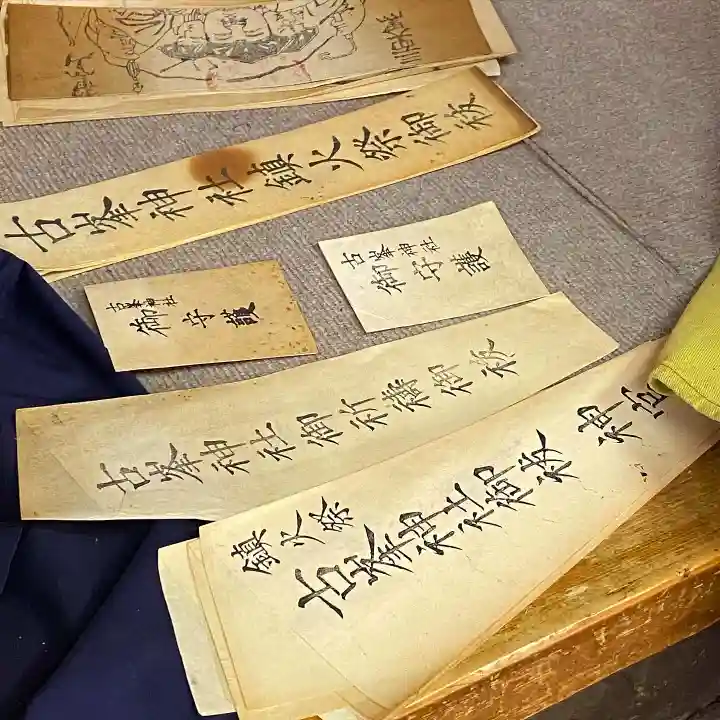 古峯神社鎮火祭御祓
古峯神社
御守護
古峯神社
御守護
古峯神社御祈禱御祓
鎮火祭
古峯神社御祓